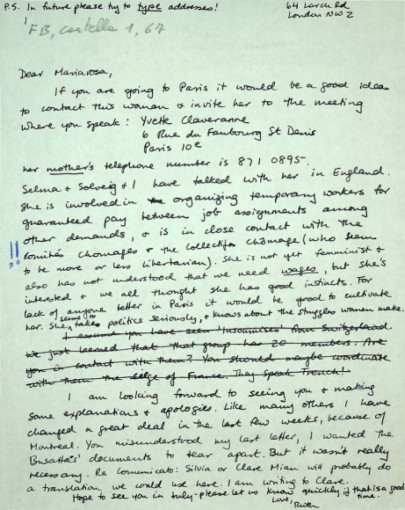 P.S. In future please try to type addresses!
64 Larch Rd
London NW2
FB, cartella 1, 67
Dear Mariarosa,
If you are going to Paris it would be a good idea
to contact this woman & invite her to the meeting
where you speak: Yvette Claveranne
6 Rue du Faubourg St Denis
Paris 10e
her mother's telephone number is 871 0895.
Selma & Solveig & I have talked with her in England.
She is involved in organizing temporary workers for
guaranteed pay between job assignments among
other demands, & is in close contact with the
comités chomages & the collectifs chômage (who seem
!! to be more or less libertarian). She is not yet feminist &
also has not understood that we need wages, but she's
interested & we all thought she has good instincts. For
lack of anyone better in Paris it would be good to cultivate
her. She seems to take politics seriously, & knows about the struggles women make.
I assume you have seen "Insoumises" from Switzerland.
We just learned that that group has 20 members. Are
you in contact with them? You should maybe coordinate
with them the siege of France. They speak French!
I am looking forward to seeing you & making
some explanations & apologies. Like many others I have
changed a great deal in the last few weeks, because of
Montreal. You misunderstood my last letter, I wanted the
Busatta's documents to tear apart. But it wasn't really
necessary. Re Comunicato: Silvia or Clare Mian will probably do
a translation we could use here. I am writing to Clare.
Hope to see you in July - please let us know quickly if that is a good
time.
Love,
Ruth